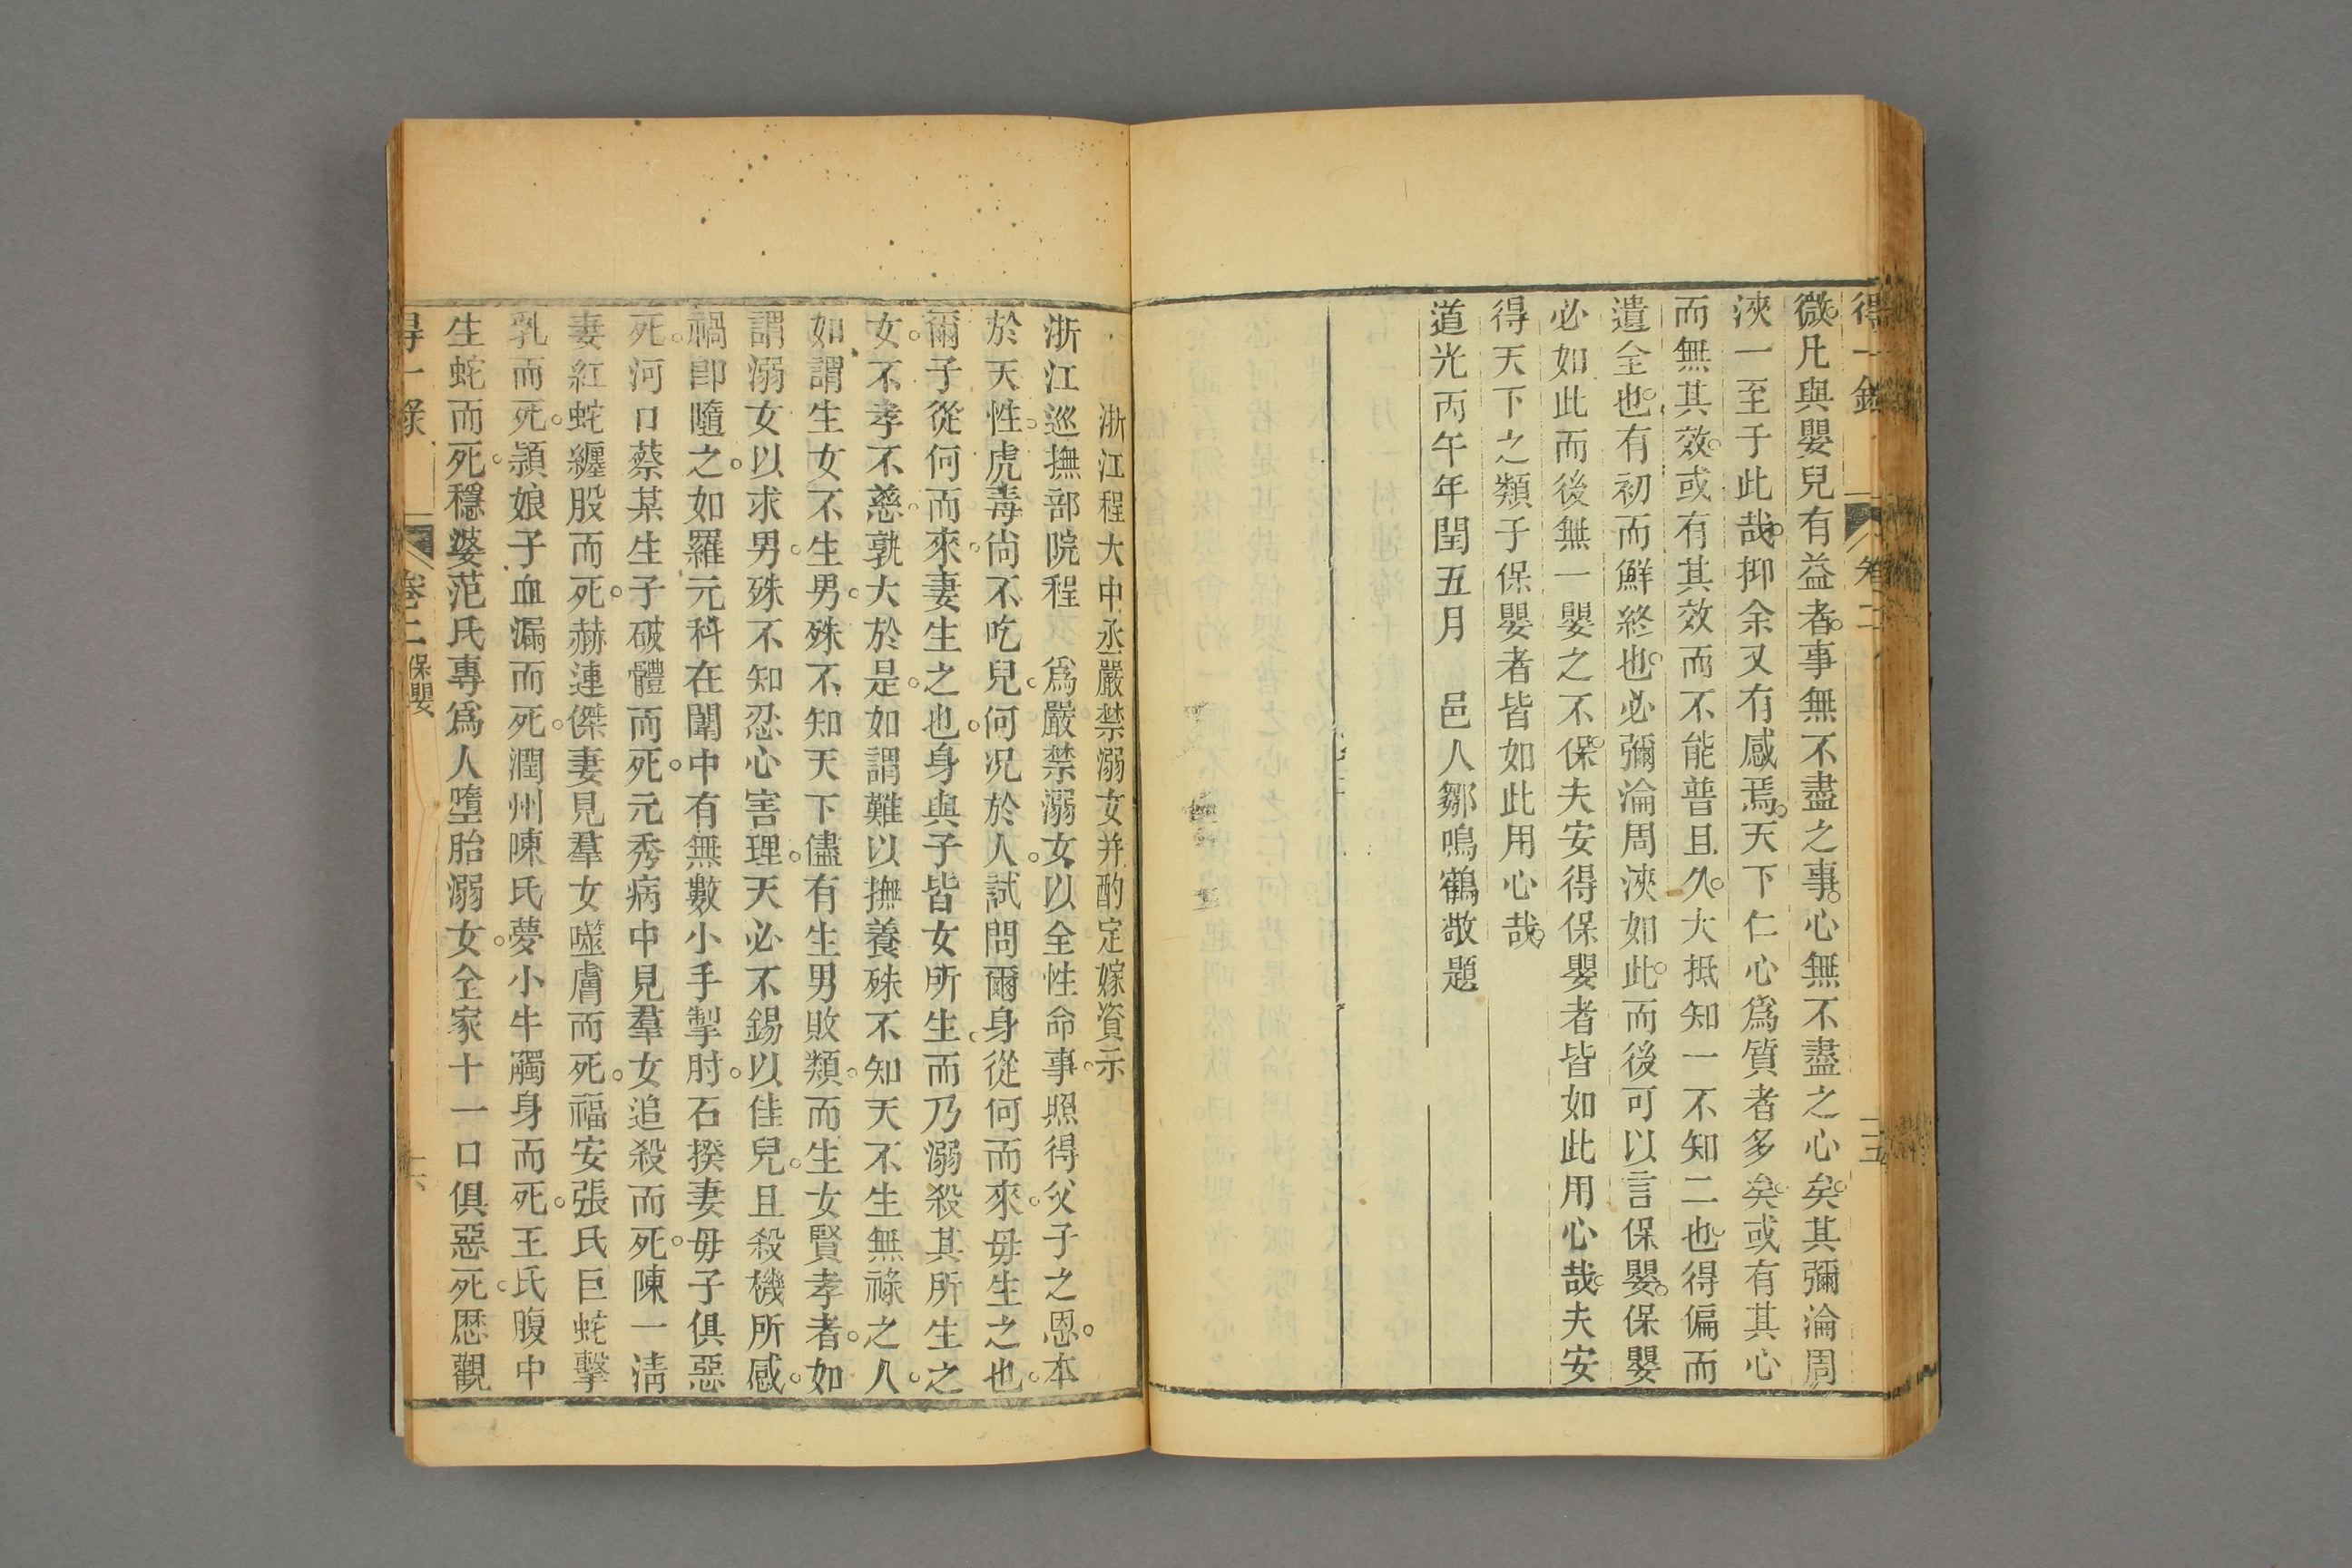 得一錄 卷二 十五
微凡與嬰兒有益者事無不盡之事心無不盡之心矣其彌淪周
浹一至于此哉抑余又有感焉天下仁心爲質者多矣或有其心
而無其效或有其效而不能普且久大抵知一不知二也得偏而
遺全也有初而鮮終也必彌淪周浹如此而後可以言保嬰保嬰
必如此而後無一嬰之不保夫安得保嬰者皆如此用心哉夫安
得天下之類于保嬰者皆如此用心哉
道光丙午年閏五月 邑人鄒鳴鶴敬題
浙江程大中丞嚴禁溺女并酌定嫁資示
浙江巡撫部院程 爲嚴禁溺女以全性命事照得父子之恩本
於天性虎毒尙不吃兒何况於人試問爾身從何而來毋生之也
爾子從何而來妻生之也身與子皆女所生而乃溺殺其所生之
女不孝不慈孰大於是如謂難以撫養殊不知天不生無祿之人
如謂生女不生男殊不知天下儘有生男敗類而生女賢孝者如
謂溺女以求男殊不知忍心害理天必不錫以佳兒且殺機所感
禍卽隨之如羅元科在闈中有無數小手掣肘石揆妻毋子俱惡
死河口蔡某生子破體而死元秀病中見羣女追殺而死陳一淸
妻紅蛇纏股而死赫連傑妻見羣女噬膚而死福安張氏巨蛇擊
乳而死潁娘子血漏而死潤州陳氏夢小牛觸身而死王氏腹中
生蛇而死穩婆范氏專爲人墮胎溺女仝家十一口俱惡死歴觀
得一錄 卷二 保嬰 十六